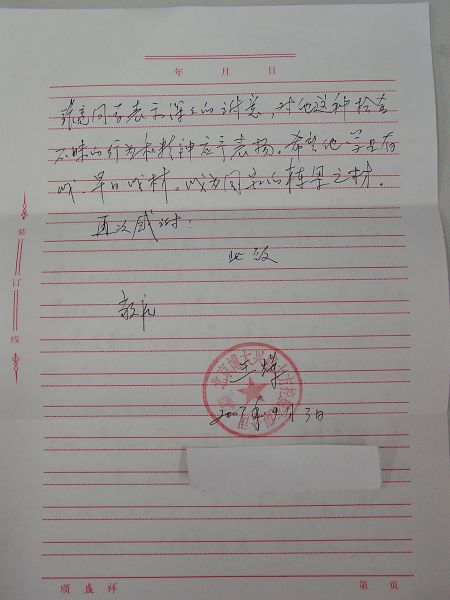 年 月 日
同学表示深深的谢意,对他这种拾金
不昧的行为和精神应予表扬。希望他学业有
成,早日成材,成为国家的栋梁之材。
再次感谢!
此致
敬礼
2007年9月3日
装订线
顺盛祥 第 页